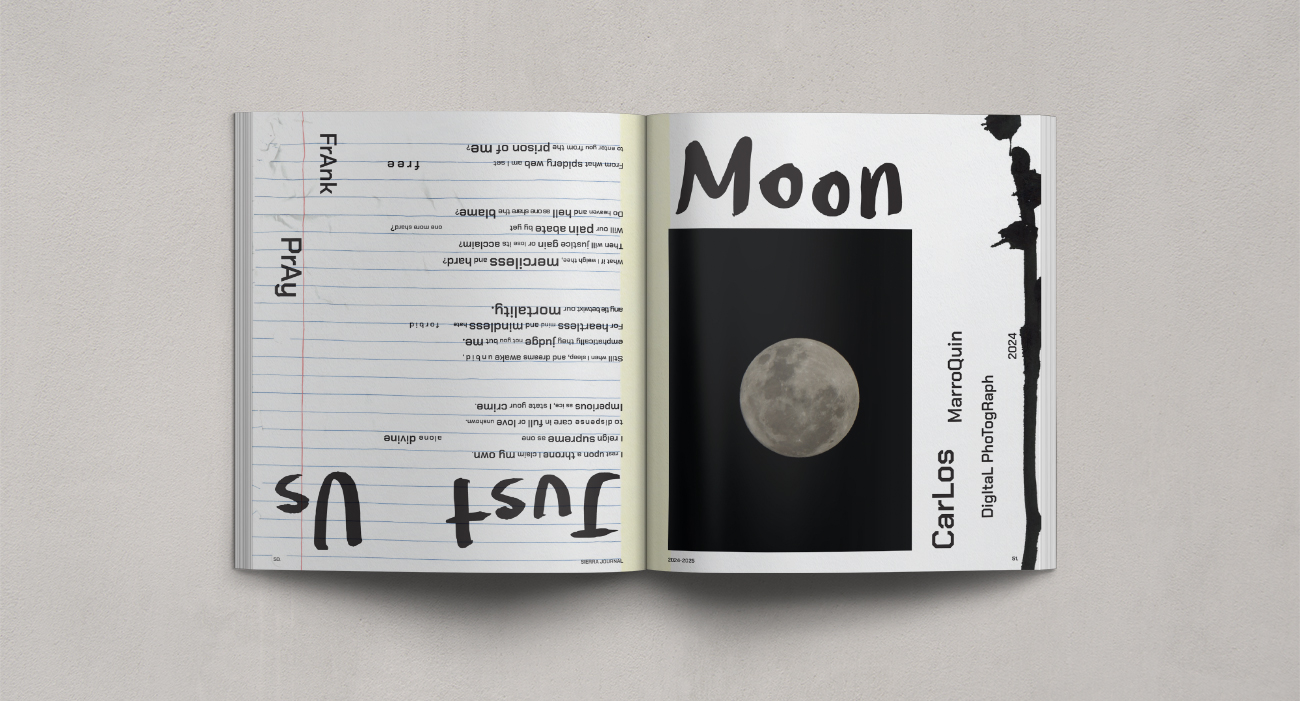 Just Us
I rest upon a throne I claim my own.
I reign supreme as one alone divine
to dispense care in full or love unshown.
Imperious as ice, I state your crime.
Still when I sleep, and dreams awake unbid,
emphatically they judge not you but me.
For heartless mind and mindless hate forbid
any tie betwixt our mortality.
What if I weigh thee, merciless and hard?
Then will justice gain or lose its acclaim?
Will our pain abate by get one more shard?
Do heaven and hell as one share the blame?
From what spidery web am I set free
to enter you from the prison of me?
FrAnk
PrAy
50.
SIERRA JOURNAL
Moon
CarLos MarroQuin
DigItaL PhoTogRaph 2024
2024-2025
51.